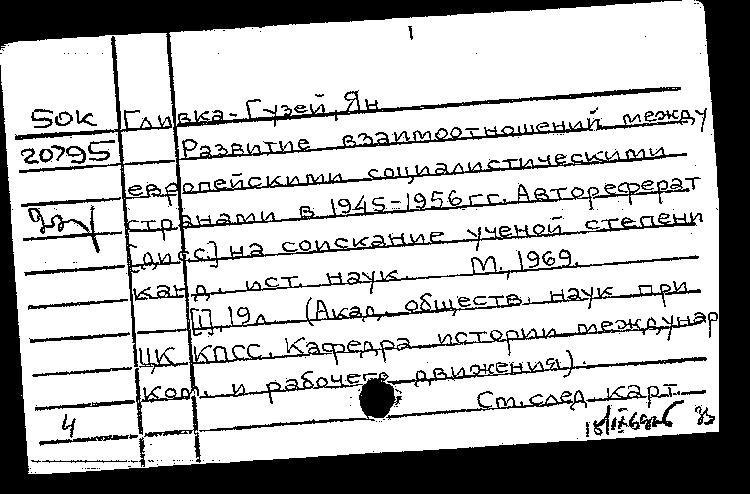 50к Гливка-Гузей, Ян
20795 Развитие взаимоотношений между
европейскими социалистическими
странами в 1945-1956 гг. Автореферат
[дисс.] на соискание ученой степени
канд. ист. наук. М., 1969.
[1], 19л (Акад. обществ. наук при
ЦК КПСС. Кафедра истории междунар
ком. и рабочего движения).
См. след карт.
4